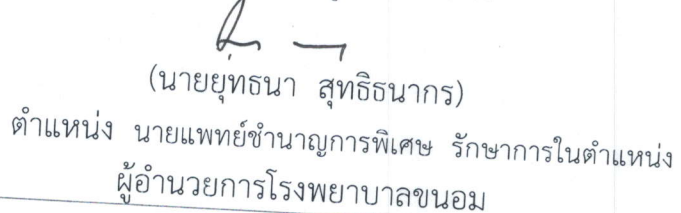 (นายยุทธนา สุทธิธนากร)
ตำแหน่ง นายแพทย์ชำนาญการพิเศษ รักษาการในตำแหน่ง
ผู้อำนวยการโรงพยาบาลขนอม